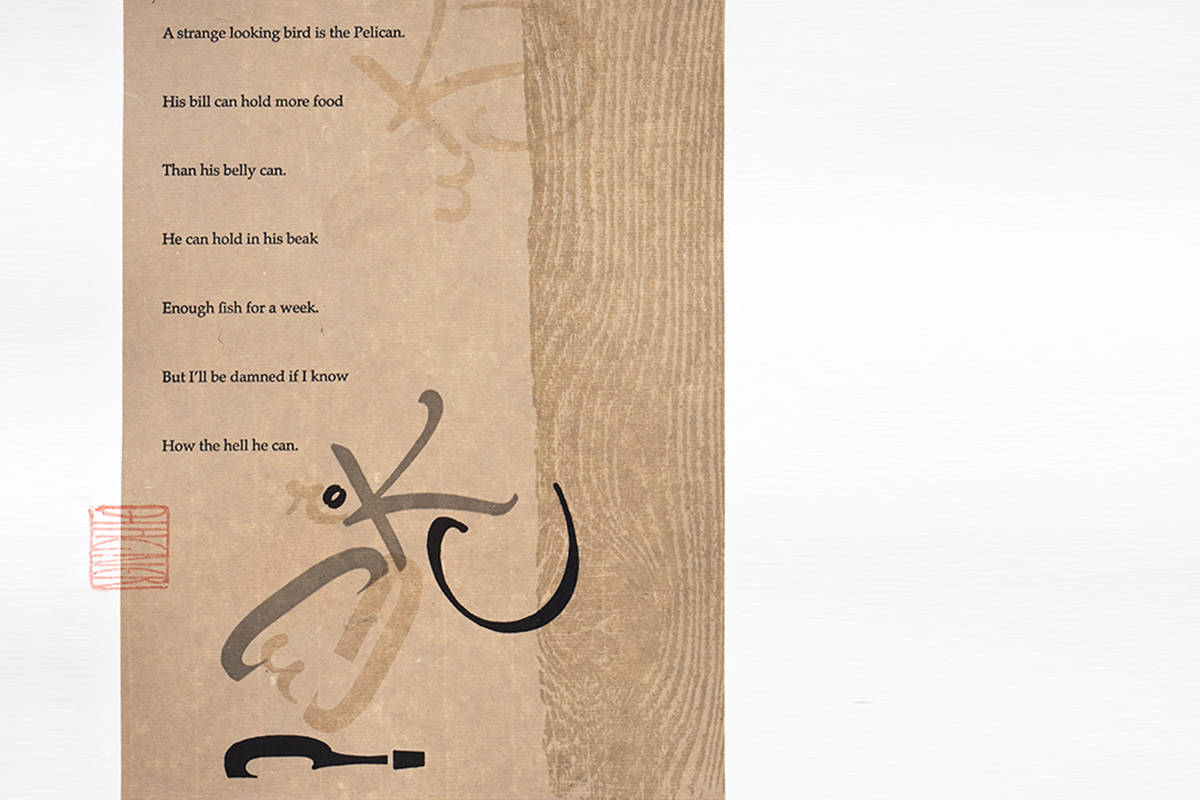 A strange looking bird is the Pelican.
His bill can hold more food
Than his belly can.
He can hold in his beak
Enough fish for a week.
But I'll be damned if I know
How the hell he can.